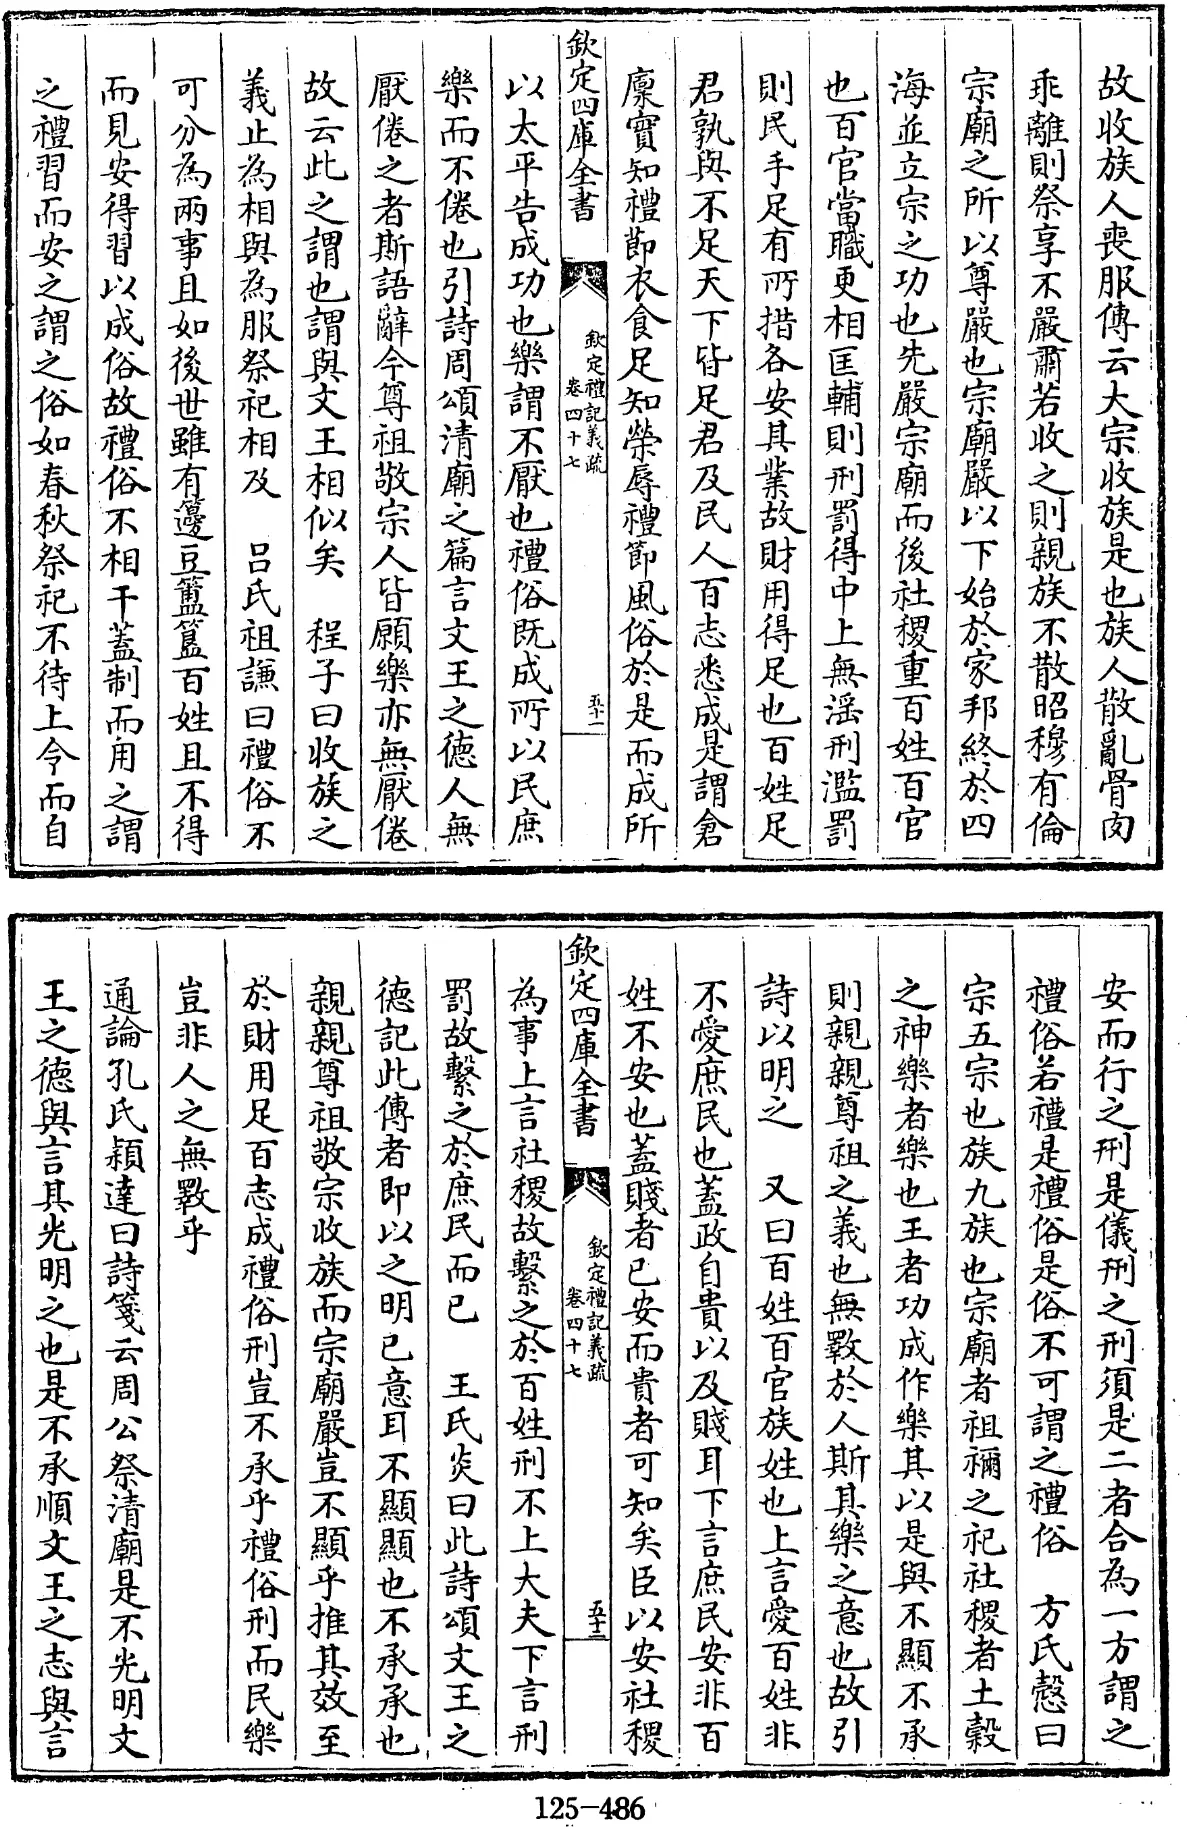 故收族人喪服傳云大宗收族是也族人散亂骨肉
乖離則祭享不嚴肅若收之則親族不散昭穆有倫
宗廟之所以尊嚴也宗廟嚴以下始於家邦終於四
海並立宗之功也先嚴宗廟而後社稷重百姓百官
也百官當職更相匡輔則刑罰得中上無淫刑濫罰
則民手足有所措各安其業故財用得足也百姓足
君孰與不足天下皆足君及民人百志悉成是謂倉
廩實知禮節衣食足知榮辱禮節風俗於是而成所
欽定四庫全書
欽定禮記義疏
卷四十七
五十一
以太平告成功也樂謂不厭也禮俗既成所以民庶
樂而不倦也引詩周頌清廟之篇言文王之德人無
厭倦之者斯語辭今尊祖敬宗人皆願樂亦無厭倦
故云此之謂也謂與文王相似矣 程子曰收族之
義止為相與為服祭祀相及 呂氏祖謙曰禮俗不
可分為兩事且如後世雖有籩豆簠簋百姓且不得
而見安得習以成俗故禮俗不相干蓋制而用之謂
之禮習而安之謂之俗如春秋祭祀不待上令而自
安而行之刑是儀刑之刑須是二者合為一方謂之
禮俗若禮是禮俗是俗不可謂之禮俗 方氏慤曰
宗五宗也族九族也宗廟者祖禰之祀社稷者土穀
之神樂者樂也王者功成作樂其以是與不顯不承
則親親尊祖之義也無斁於人斯其樂之意也故引
詩以明之 又曰百姓百官族姓也上言愛百姓非
不愛庶民也蓋政自貴以及賤耳下言庶民安非百
姓不安也蓋賤者已安而貴者可知矣臣以安社稷
欽定四庫全書
欽定禮記義疏
卷四十七
五十二
為事上言社稷故繫之於百姓刑不上大夫下言刑
罰故繫之於庶民而已 王氏炎曰此詩頌文王之
德記此傳者即以之明已意耳不顯顯也不承承也
親親尊祖敬宗收族而宗廟嚴豈不顯乎推其效至
於財用足百志成禮俗刑豈不承乎禮俗刑而民樂
豈非人之無斁乎
通論孔氏穎達曰詩箋云周公祭清廟是不光明文
王之德與言其光明之也是不承順文王之志與言
125-486